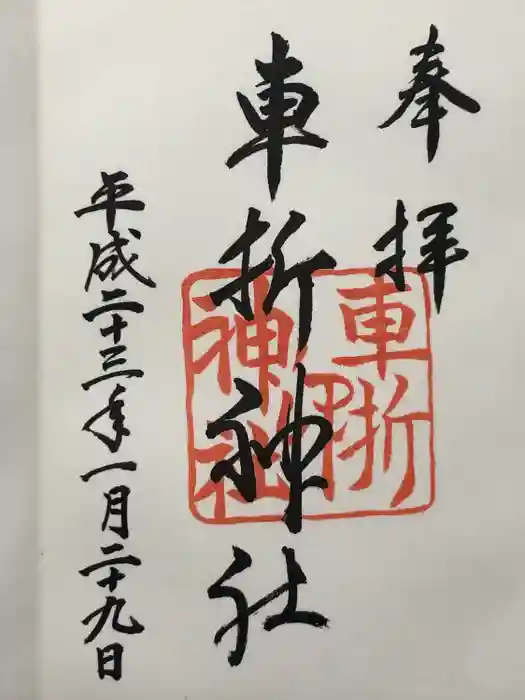 奉拝
車折神社
平成二十三年一月二十九日
車折
神社